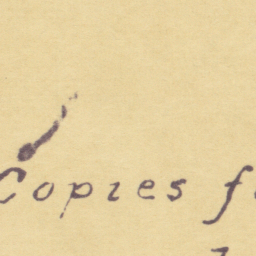 Copies f